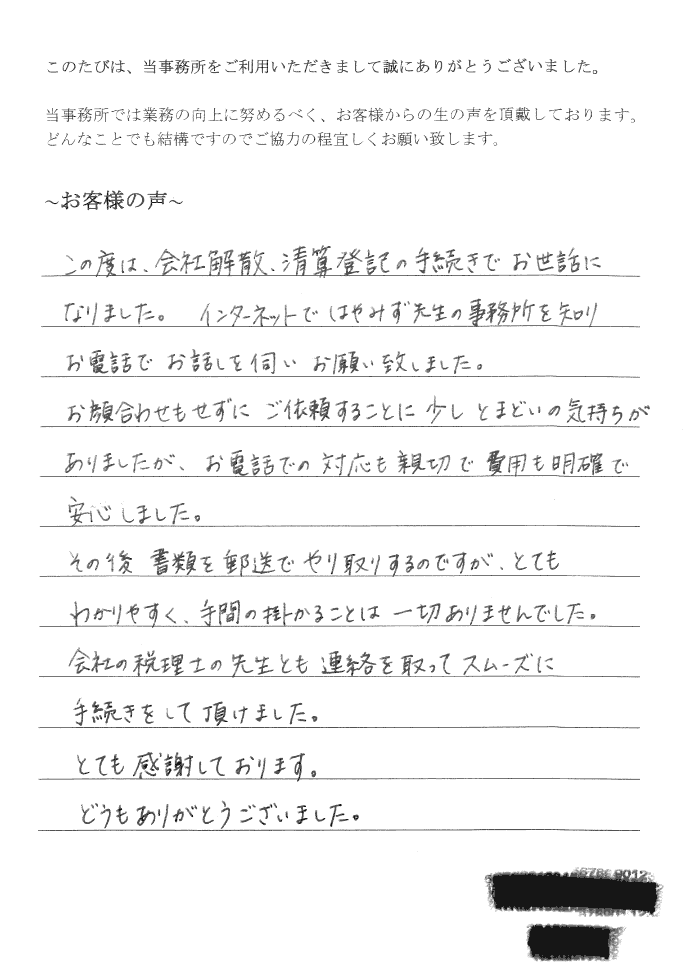 このたびは、当事務所をご利用いただきまして誠にありがとうございました。
当事務所では業務の向上に努めるべく、お客様からの生の声を頂戴しております。
どんなことでも結構ですのでご協力の程宜しくお願い致します。
~お客様の声~
この度は、会社解散、清算登記の手続きでお世話に
なりました。 インターネットではやみず先生の事務所を知り
お電話でお話しを伺いお願い致しました。
お顔合わせもせずにご依頼することに少しとまどいの気持ちが
ありましたが、お電話での対応も親切で費用も明確で
安心しました。
その後書類を郵送でやり取りするのですが、とても
わかりやすく、手間の掛かることは一切ありませんでした。
会社の税理士の先生とも連絡を取ってスムーズに
手続きをして頂けました。
とても感謝しております。
どうもありがとうございました。